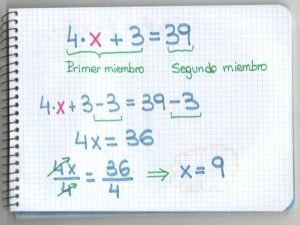 4·x + 3 = 39
Primer miembro Segundo miembro
4·x + 3 - 3 = 39 - 3
4x = 36
4x/4 = 36/4 ⇒ x = 9